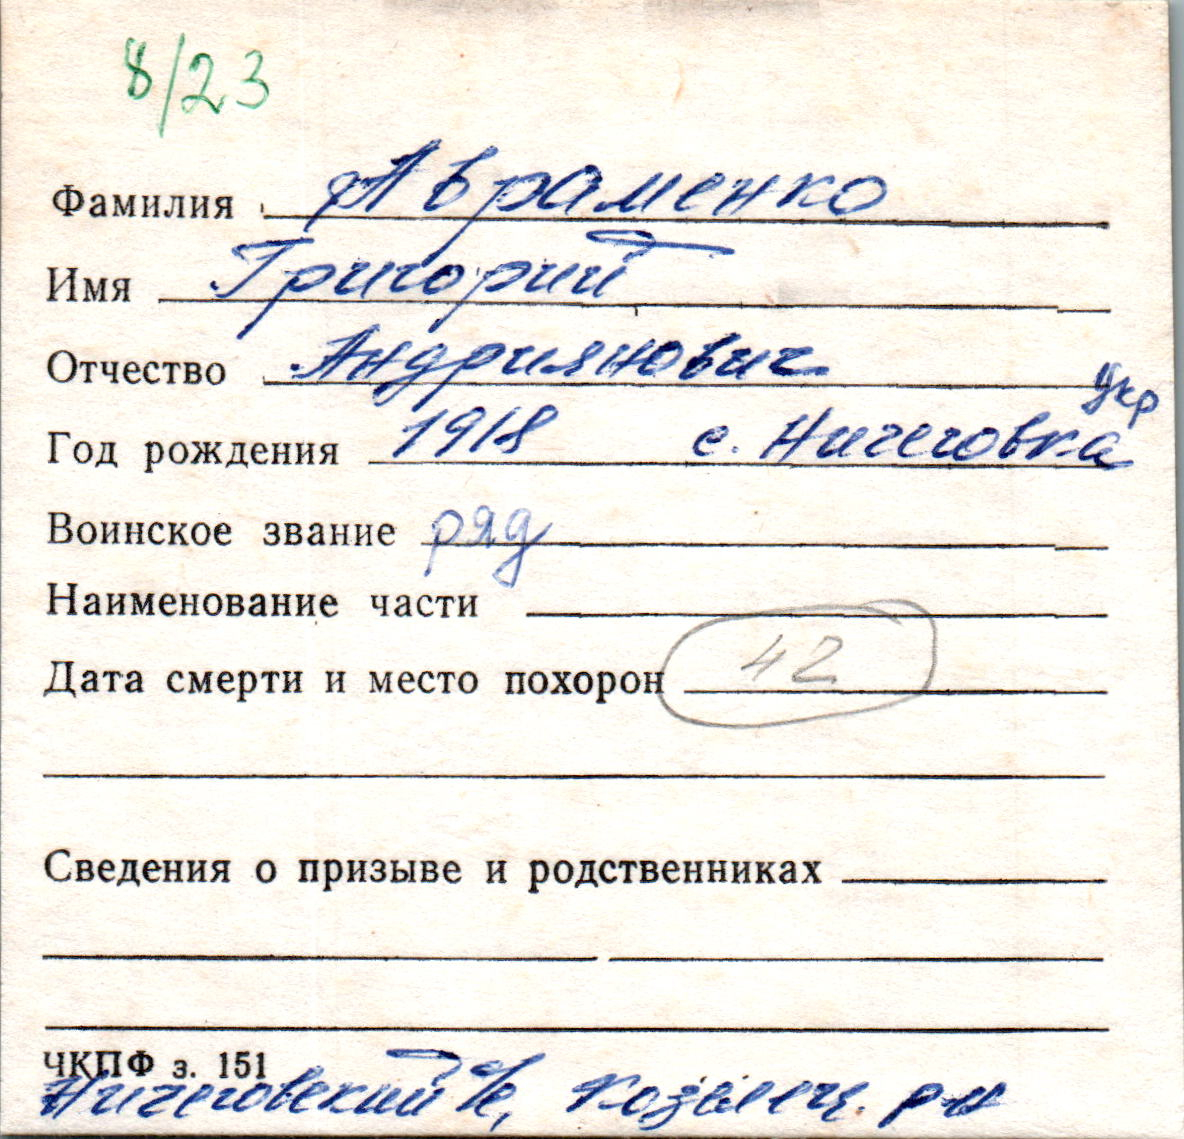 8/23
Фамилия Авраменко
Имя Григорий
Отчество Андриянович
укр
Год рождения 1918 с. Ничеговка
Воинское звание ряд
Наименование части
Дата смерти и место похорон 42
Сведения о призыве и родственниках
ЧКПФ з. 151
Ничеговский с/с, Козелец. р-н